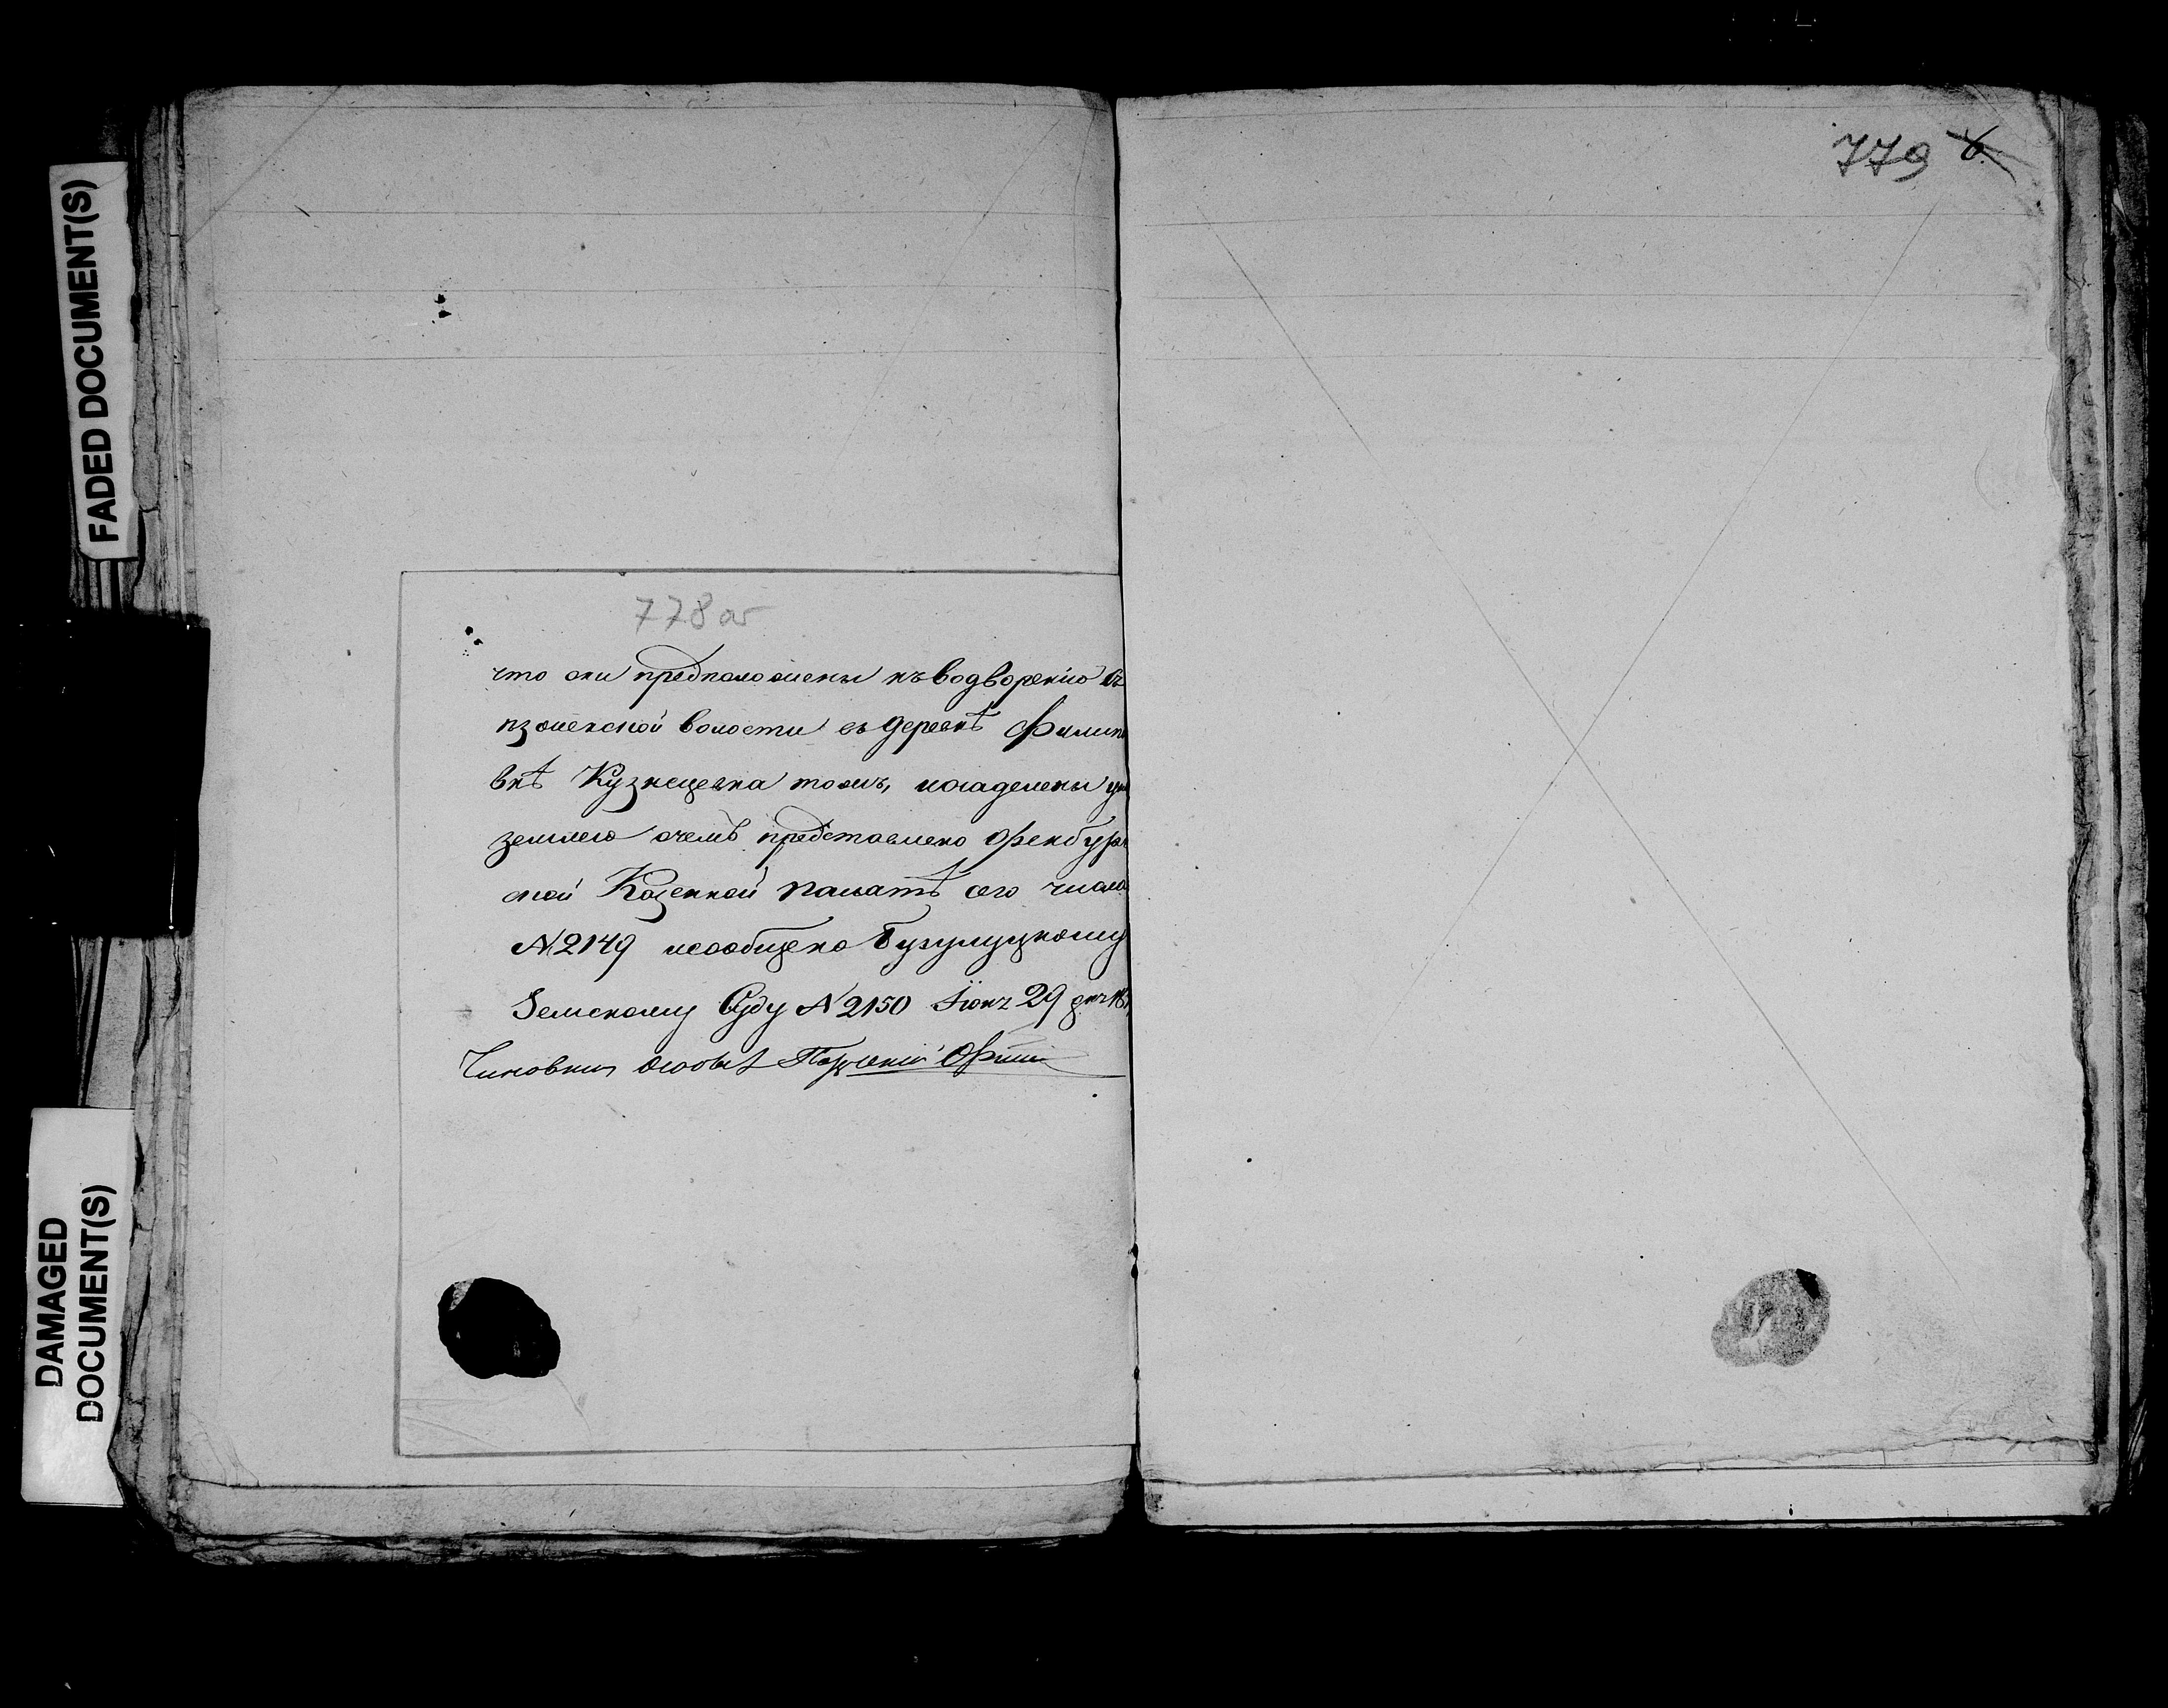 FADED DOCUMENT(S)
DAMAGED
DOCUMENT(S)
779
778 об
что они предположены къ водворенію въ
волости въ деревнѣ Филипо
вкѣ Кузнецевка тожъ, надѣлены
землею очемъ представлено Оренбург
ской Казенной палатѣ сего числа
№2149 исообщено Бузулуцкому
Земскому Суду №2150 Іюнъ 29 дня
Чиновник